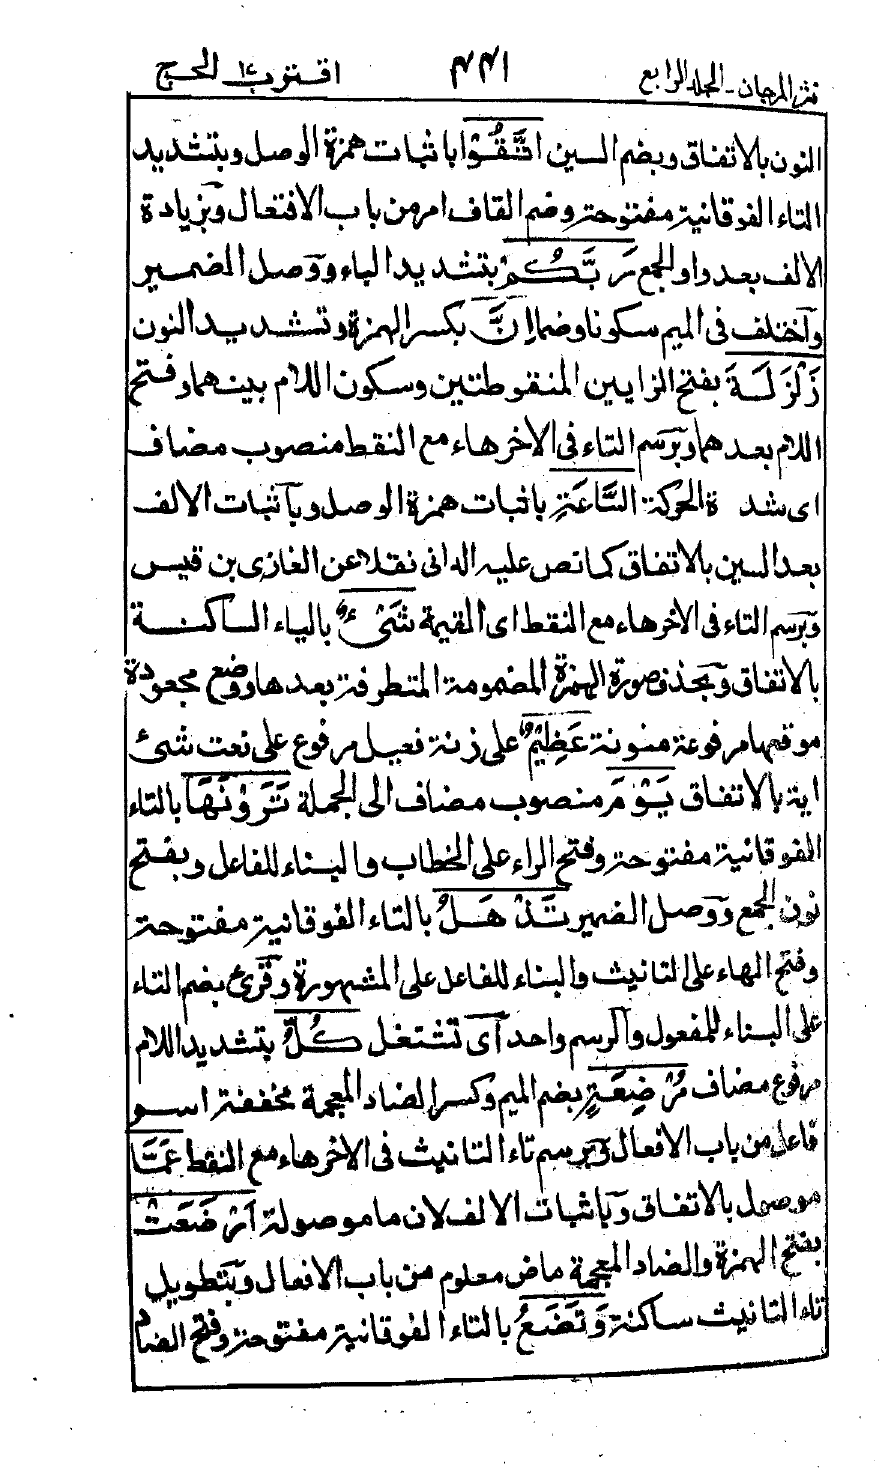 نثر المرجان - المجلد الرابع ٤٤١ اقترب ١٤ الحج
النون بالاتفاق وبضم السين اتَّقُوْا باثبات همزة الوصل وبتشديد
التاء الفوقانية مفتوحة وضم القاف امر من باب الافتعال وبزيادة
الالف بعد واو الجمع رَبَّكُمْ بتشديد الباء ووصل الضمير
واختلف فى الميم سكونا وضما اِنَّ بكسر الهمزة وتشديد النون
زَلْزَلَةَ بفتح الزايين المنقوطتين وسكون اللام بينهما وفتح
اللام بعدهما وبرسم التاء فى الاخر هاء مع النقط منصوب مضاف
اى شدة الحركة السَّاعَةِ باثبات همزة الوصل وباثبات الالف
بعد السين بالاتفاق كما نص عليه الدانى نقلا عن الغازى بن قيس
وبرسم التاء فى الاخر هاء مع النقط اى القيمة شَىْءٌ بالياء الساكنة
بالاتفاق وبحذف صورة الهمزة المضمومة المتطرفة بعدها ووضع مجعودة
موقعها مرفوعة منونة عَظِيْمٌ على زنة فعيل مرفوع على نعت شىء
اية بالاتفاق يَوْمَ منصوب مضاف الى الجملة تَرَوْنَهَا بالتاء
الفوقانية مفتوحة وفتح الراء على الخطاب والبناء للفاعل وبفتح
نون الجمع ووصل الضمير تَذْهَلُ بالتاء الفوقانية مفتوحة
وفتح الهاء على التانيث والبناء للفاعل على المشهورة وقرئ بضم التاء
على البناء للمفعول والرسم واحد اى تشتغل كُلُّ بتشديد اللام
مرفوع مضاف مُرْضِعَةٍ بضم الميم وكسر الضاد المعجمة مخففة اسو
فاعل من باب الافعال وبرسم تاء التانيث فى الاخر هاء مع النقط عَمَّا
موصول بالاتفاق وباثبات الالف لان ما موصولة اَرْضَعَتْ
بفتح الهمزة والضاد المعجمة ماض معلوم من باب الافعال وبتطويل
تاء التانيث ساكنة وَتَضَعُ بالتاء الفوقانية مفتوحة وفتح الضاد